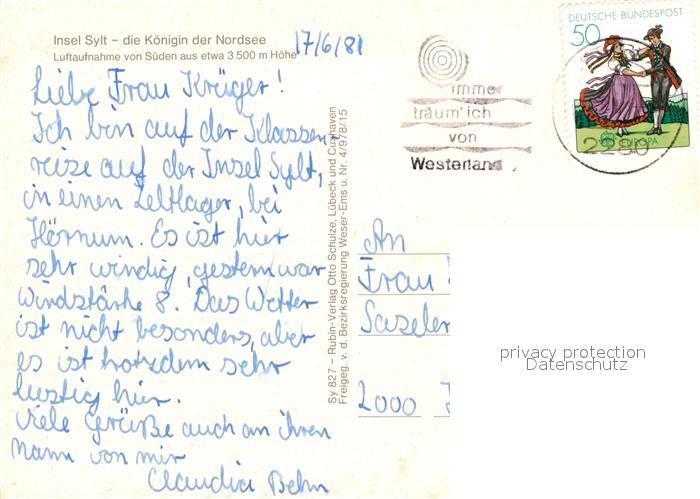 Insel Sylt – die Königin der Nordsee
Luftaufnahme von Süden aus etwa 3 500 m Höhe
17/6/81
Liebe Frau Krüger!
Ich bin auf der Klassen-
reise auf der Insel Sylt,
in einen Zeltlager, bei
Hörnum. Es ist hier
sehr windig, gestern war
Windstärke 8. Das Wetter
ist nicht besonders, aber
es ist trotzdem sehr
lustig hier.
Viele Grüße auch an ihren
Mann von mir
Claudia Behn
Sy 827 – Rubin-Verlag Otto Schulze, Lübeck und Cuxhaven
Freigeg. v. d. Bezirksregierung Weser-Ems u. Nr. 4/978/15
immer
träum' ich
von
Westerland
DEUTSCHE BUNDESPOST
50
EUROPA
2280
An
Frau
Saseler
2000
privacy protection
Datenschutz